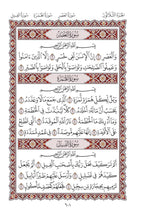 الجزء الثلاثون سورة العصر سورة الهمزة سورة الفيل
سُورَةُ الْعَصْرِ
بِسْمِ اللَّهِ الرَّحْمَٰنِ الرَّحِيمِ
وَالْعَصْرِ ١ إِنَّ الْإِنسَانَ لَفِي خُسْرٍ ٢ إِلَّا الَّذِينَ ءَامَنُوا
وَعَمِلُوا الصَّالِحَاتِ وَتَوَاصَوْا بِالْحَقِّ وَتَوَاصَوْا بِالصَّبْرِ ٣
سُورَةُ الْهُمَزَةِ
بِسْمِ اللَّهِ الرَّحْمَٰنِ الرَّحِيمِ
وَيْلٌ لِّكُلِّ هُمَزَةٍ لُّمَزَةٍ ١ الَّذِي جَمَعَ مَالًا وَعَدَّدَهُ ٢ يَحْسَبُ
أَنَّ مَالَهُ أَخْلَدَهُ ٣ كَلَّا لَيُنبَذَنَّ فِي الْحُطَمَةِ ٤ وَمَا أَدْرَاكَ
مَا الْحُطَمَةُ ٥ نَارُ اللَّهِ الْمُوقَدَةُ ٦ الَّتِي تَطَّلِعُ عَلَى
الْأَفْئِدَةِ ٧ إِنَّهَا عَلَيْهِم مُّؤْصَدَةٌ ٨ فِي عَمَدٍ مُّمَدَّدَةٍ ٩
سُورَةُ الْفِيلِ
بِسْمِ اللَّهِ الرَّحْمَٰنِ الرَّحِيمِ
أَلَمْ تَرَ كَيْفَ فَعَلَ رَبُّكَ بِأَصْحَابِ الْفِيلِ ١ أَلَمْ يَجْعَلْ
كَيْدَهُمْ فِي تَضْلِيلٍ ٢ وَأَرْسَلَ عَلَيْهِمْ طَيْرًا أَبَابِيلَ ٣
تَرْمِيهِم بِحِجَارَةٍ مِّن سِجِّيلٍ ٤ فَجَعَلَهُمْ كَعَصْفٍ مَّأْكُولٍ ٥
٦٠١